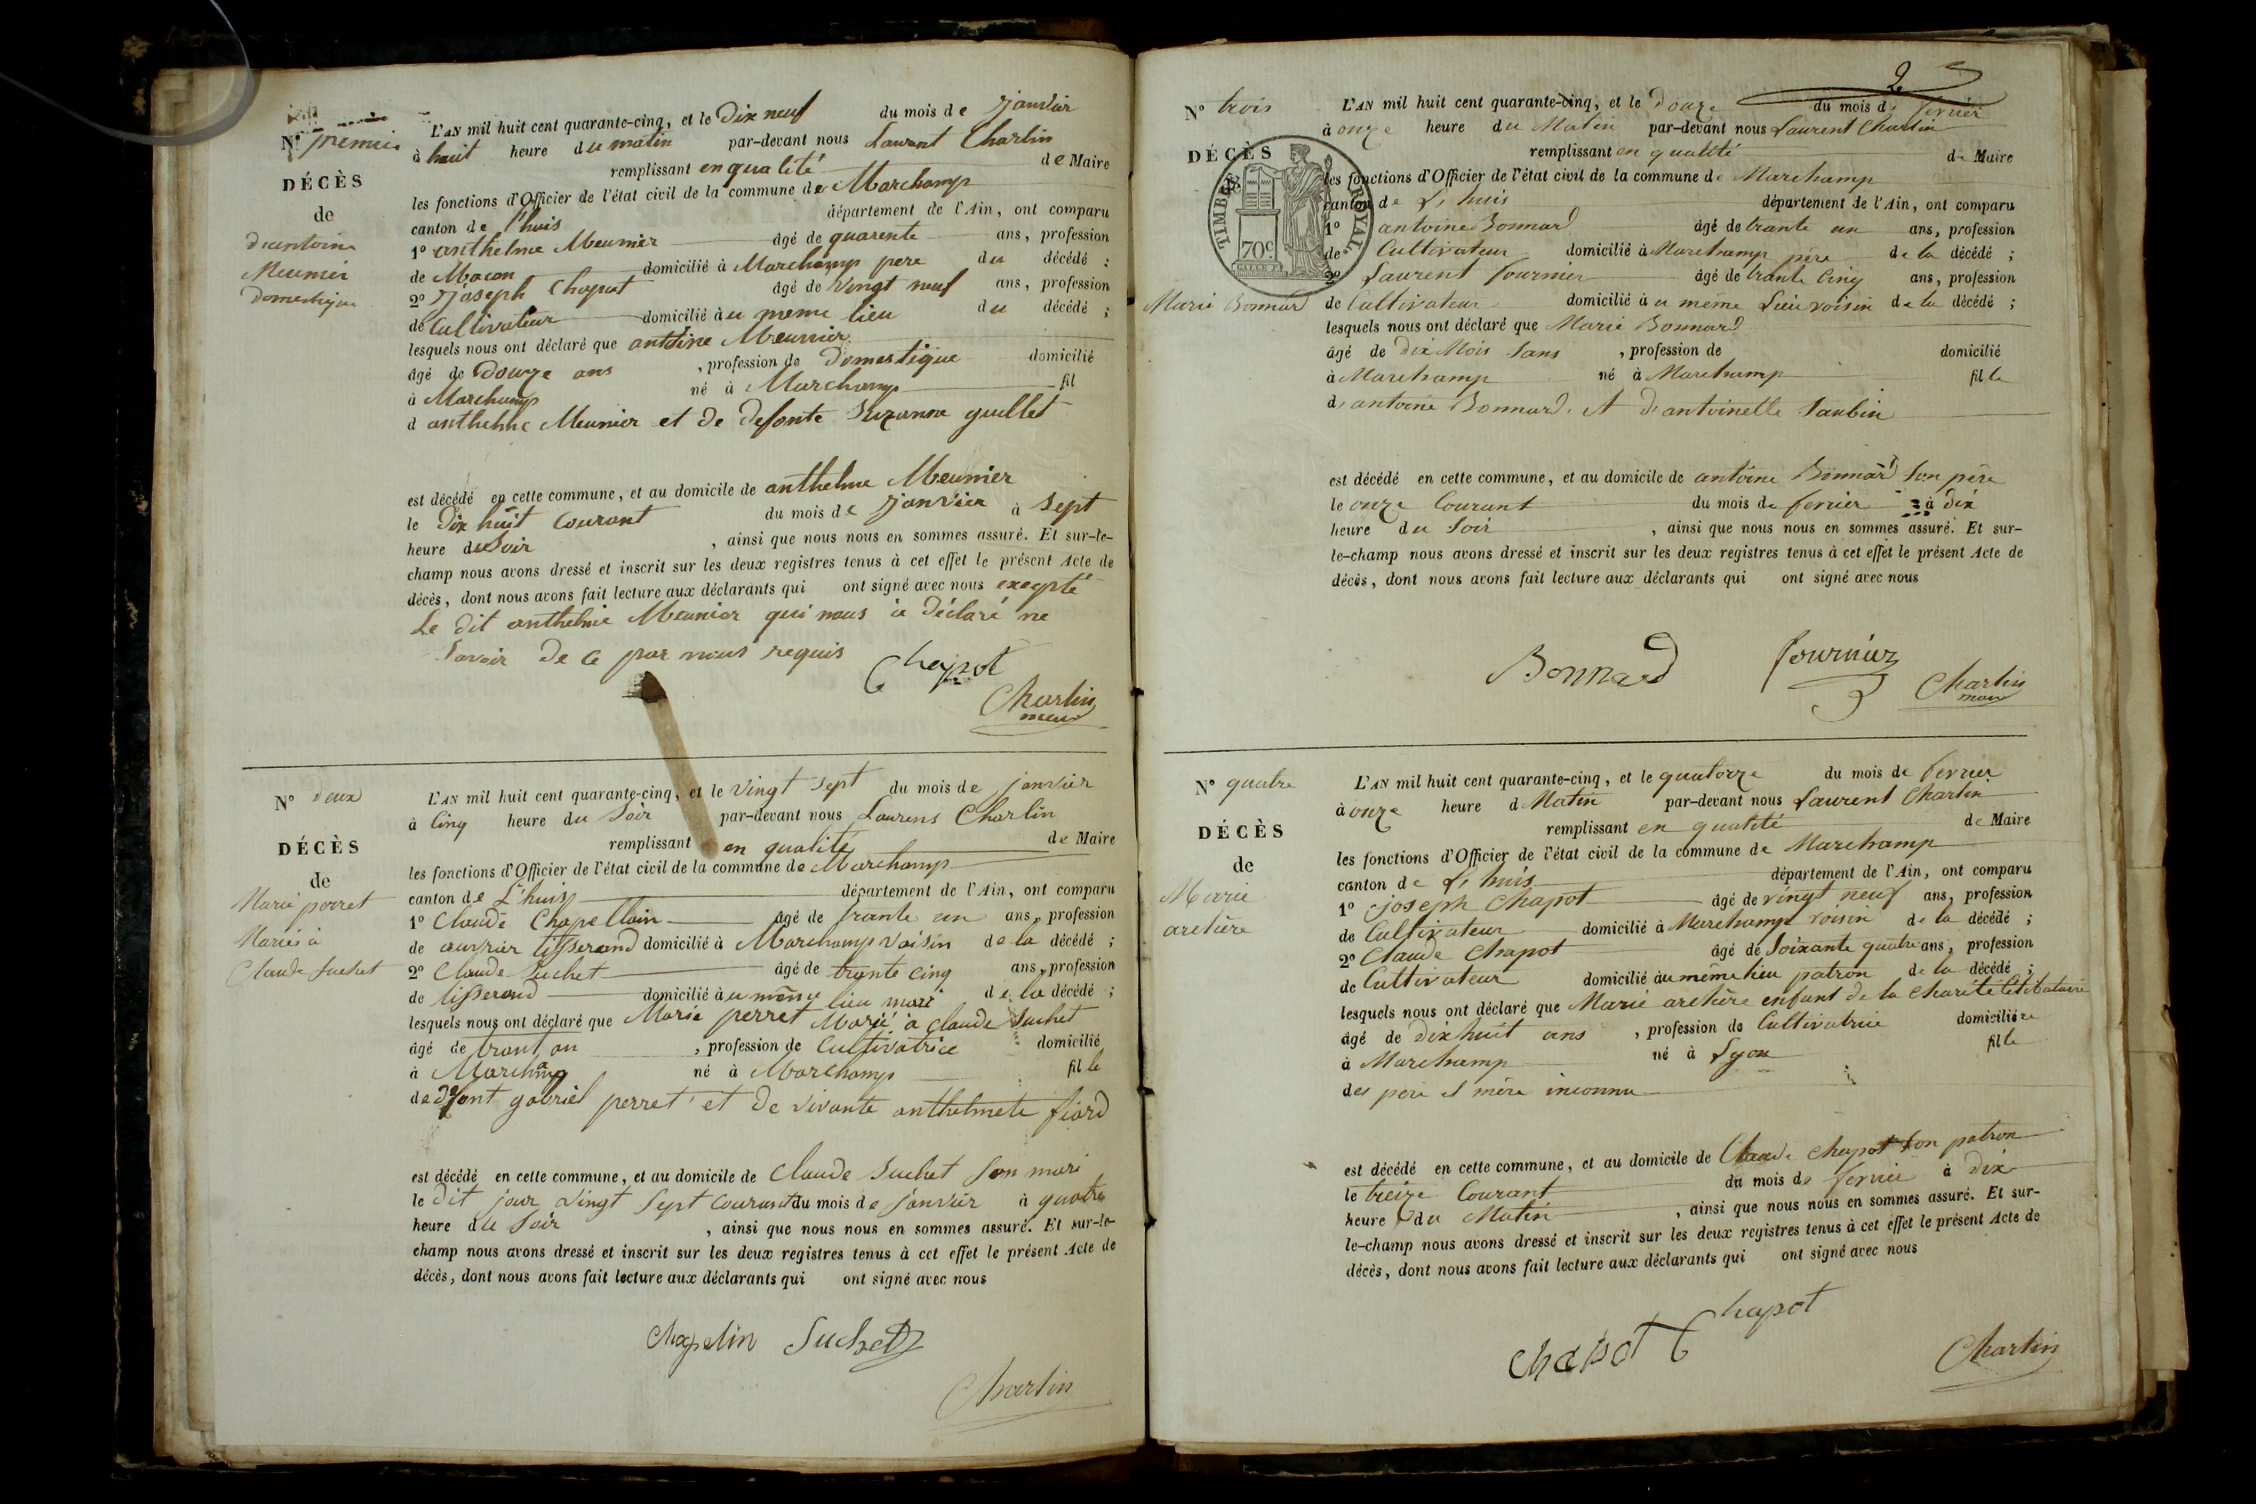 N° premier
DÉCÈS
de
d'antoine
Meunier
domestique
L'AN mil huit cent quarante-cinq, et le Dix neuf du mois de Janvier
à huit heure du matin par-devant nous Laurent Charlin
remplissant en qualité de Maire
les fonctions d'Officier de l'état civil de la commune de Marchamp
canton de l'huis département de l'Ain, ont comparu
1° anthelme Meunier âgé de quarente ans, profession
de Macon domicilié à Marchamp pere du décédé ;
2° Joseph Chapot âgé de vingt neuf ans, profession
de Cultivateur domicilié à u meme lieu du décédé ;
lesquels nous ont déclaré que antoine Meunier
âgé de Douze ans , profession de Domestique domicilié
à Marchamp né à Marchamp fil
d anthelme Meunier et de defonte Suzanne guillet
est décédé en cette commune, et au domicile de anthelme Meunier
le Dix huit Courant du mois de Janvier à Sept
heure du Soir , ainsi que nous nous en sommes assuré. Et sur-le-
champ nous avons dressé et inscrit sur les deux registres tenus à cet effet le présent Acte de
décès, dont nous avons fait lecture aux déclarants qui ont signé avec nous exepté
Le dit anthelme Meunier qui nous a déclaré ne
Savoir de ce par nous requis
Chapot
Charlin
maire
N° deux
DÉCÈS
de
Marie perret
Mariés à
Claude Suchet
L'AN mil huit cent quarante-cinq, et le Vingt Sept du mois de janvier
à Cinq heure du Soir par-devant nous Laurens Charlin
remplissant en qualité de Maire
les fonctions d'Officier de l'état civil de la commune de Marchamp
canton de L'huis département de l'Ain, ont comparu
1° Claude Chapellain âgé de trante un ans, profession
de ouvrier tisserand domicilié à Marchamp voisin de la décédé ;
2° Claude Suchet âgé de trante cinq ans, profession
de tisserand domicilié à u même lieu mari de la décédé ;
lesquels nous ont déclaré que Marie perret Marié a claude Suchet
âgé de trant an , profession de Cultivatrice domicilié
à Marchamp né à Marchamp fil le
de defont gabriel perret et de vivante anthelmete fiard
est décédé en cette commune, et au domicile de Claude Suchet Son mari
le Dit jour vingt Sept courant du mois de janvier à quatre
heure du Soir , ainsi que nous nous en sommes assuré. Et sur-le-
champ nous avons dressé et inscrit sur les deux registres tenus à cet effet le présent Acte de
décès, dont nous avons fait lecture aux déclarants qui ont signé avec nous
Chapelin Suchet
Charlin
2
N° trois
DÉCÈS
TIMBRE ROYAL
70c
Marie Bonnard
L'AN mil huit cent quarante-cinq, et le Douze du mois de fevrier
à onze heure du Matin par-devant nous Laurent Charlin
remplissant en qualité de Maire
les fonctions d'Officier de l'état civil de la commune de Marchamp
canton de L'huis département de l'Ain, ont comparu
1° antoine Bonnard âgé de trante un ans, profession
de Cultivateur domicilié à Marchamp père de la décédé ;
2° Laurent fournier âgé de trante Cinq ans, profession
de Cultivateur domicilié à u même Lieu voisin de la décédé ;
lesquels nous ont déclaré que Marie Bonnard
âgé de dix Mois Sans , profession de domicilié
à Marchamp né à Marchamp fil le
d'antoine Bonnard et d'antoinette Saubin
est décédé en cette commune, et au domicile de antoine Bonnard Son père
le onze Courant du mois de fevrier à dix
heure du Soir , ainsi que nous nous en sommes assuré. Et sur-
le-champ nous avons dressé et inscrit sur les deux registres tenus à cet effet le présent Acte de
décès, dont nous avons fait lecture aux déclarants qui ont signé avec nous
Bonnard fournier
Charlin
maire
N° quatre
DÉCÈS
de
Marie
aretière
L'AN mil huit cent quarante-cinq, et le quatorze du mois de fevrier
à onze heure d Matin par-devant nous Laurent Charlin
remplissant en qualité de Maire
les fonctions d'Officier de l'état civil de la commune de Marchamp
canton de L'huis département de l'Ain, ont comparu
1° joseph Chapot âgé de vingt neuf ans, profession
de Cultivateur domicilié à Marchamp voisin de la décédé ;
2° Claude Chapot âgé de Soixante quatre ans, profession
de Cultivateur domicilié au même lieu patron de la décédé ;
lesquels nous ont déclaré que Marie aretière enfant de la charité Celibataire
âgé de dix huit ans , profession de Cultivatrice domicilié
à Marchamp né à Lyon fil le
des pere et mère inconnu
est décédé en cette commune, et au domicile de Claude Chapot Son patron
le treize Courant du mois de fevrier à dix
heure du Matin , ainsi que nous nous en sommes assuré. Et sur-
le-champ nous avons dressé et inscrit sur les deux registres tenus à cet effet le présent Acte de
décès, dont nous avons fait lecture aux déclarants qui ont signé avec nous
Chapot Chapot
Charlin